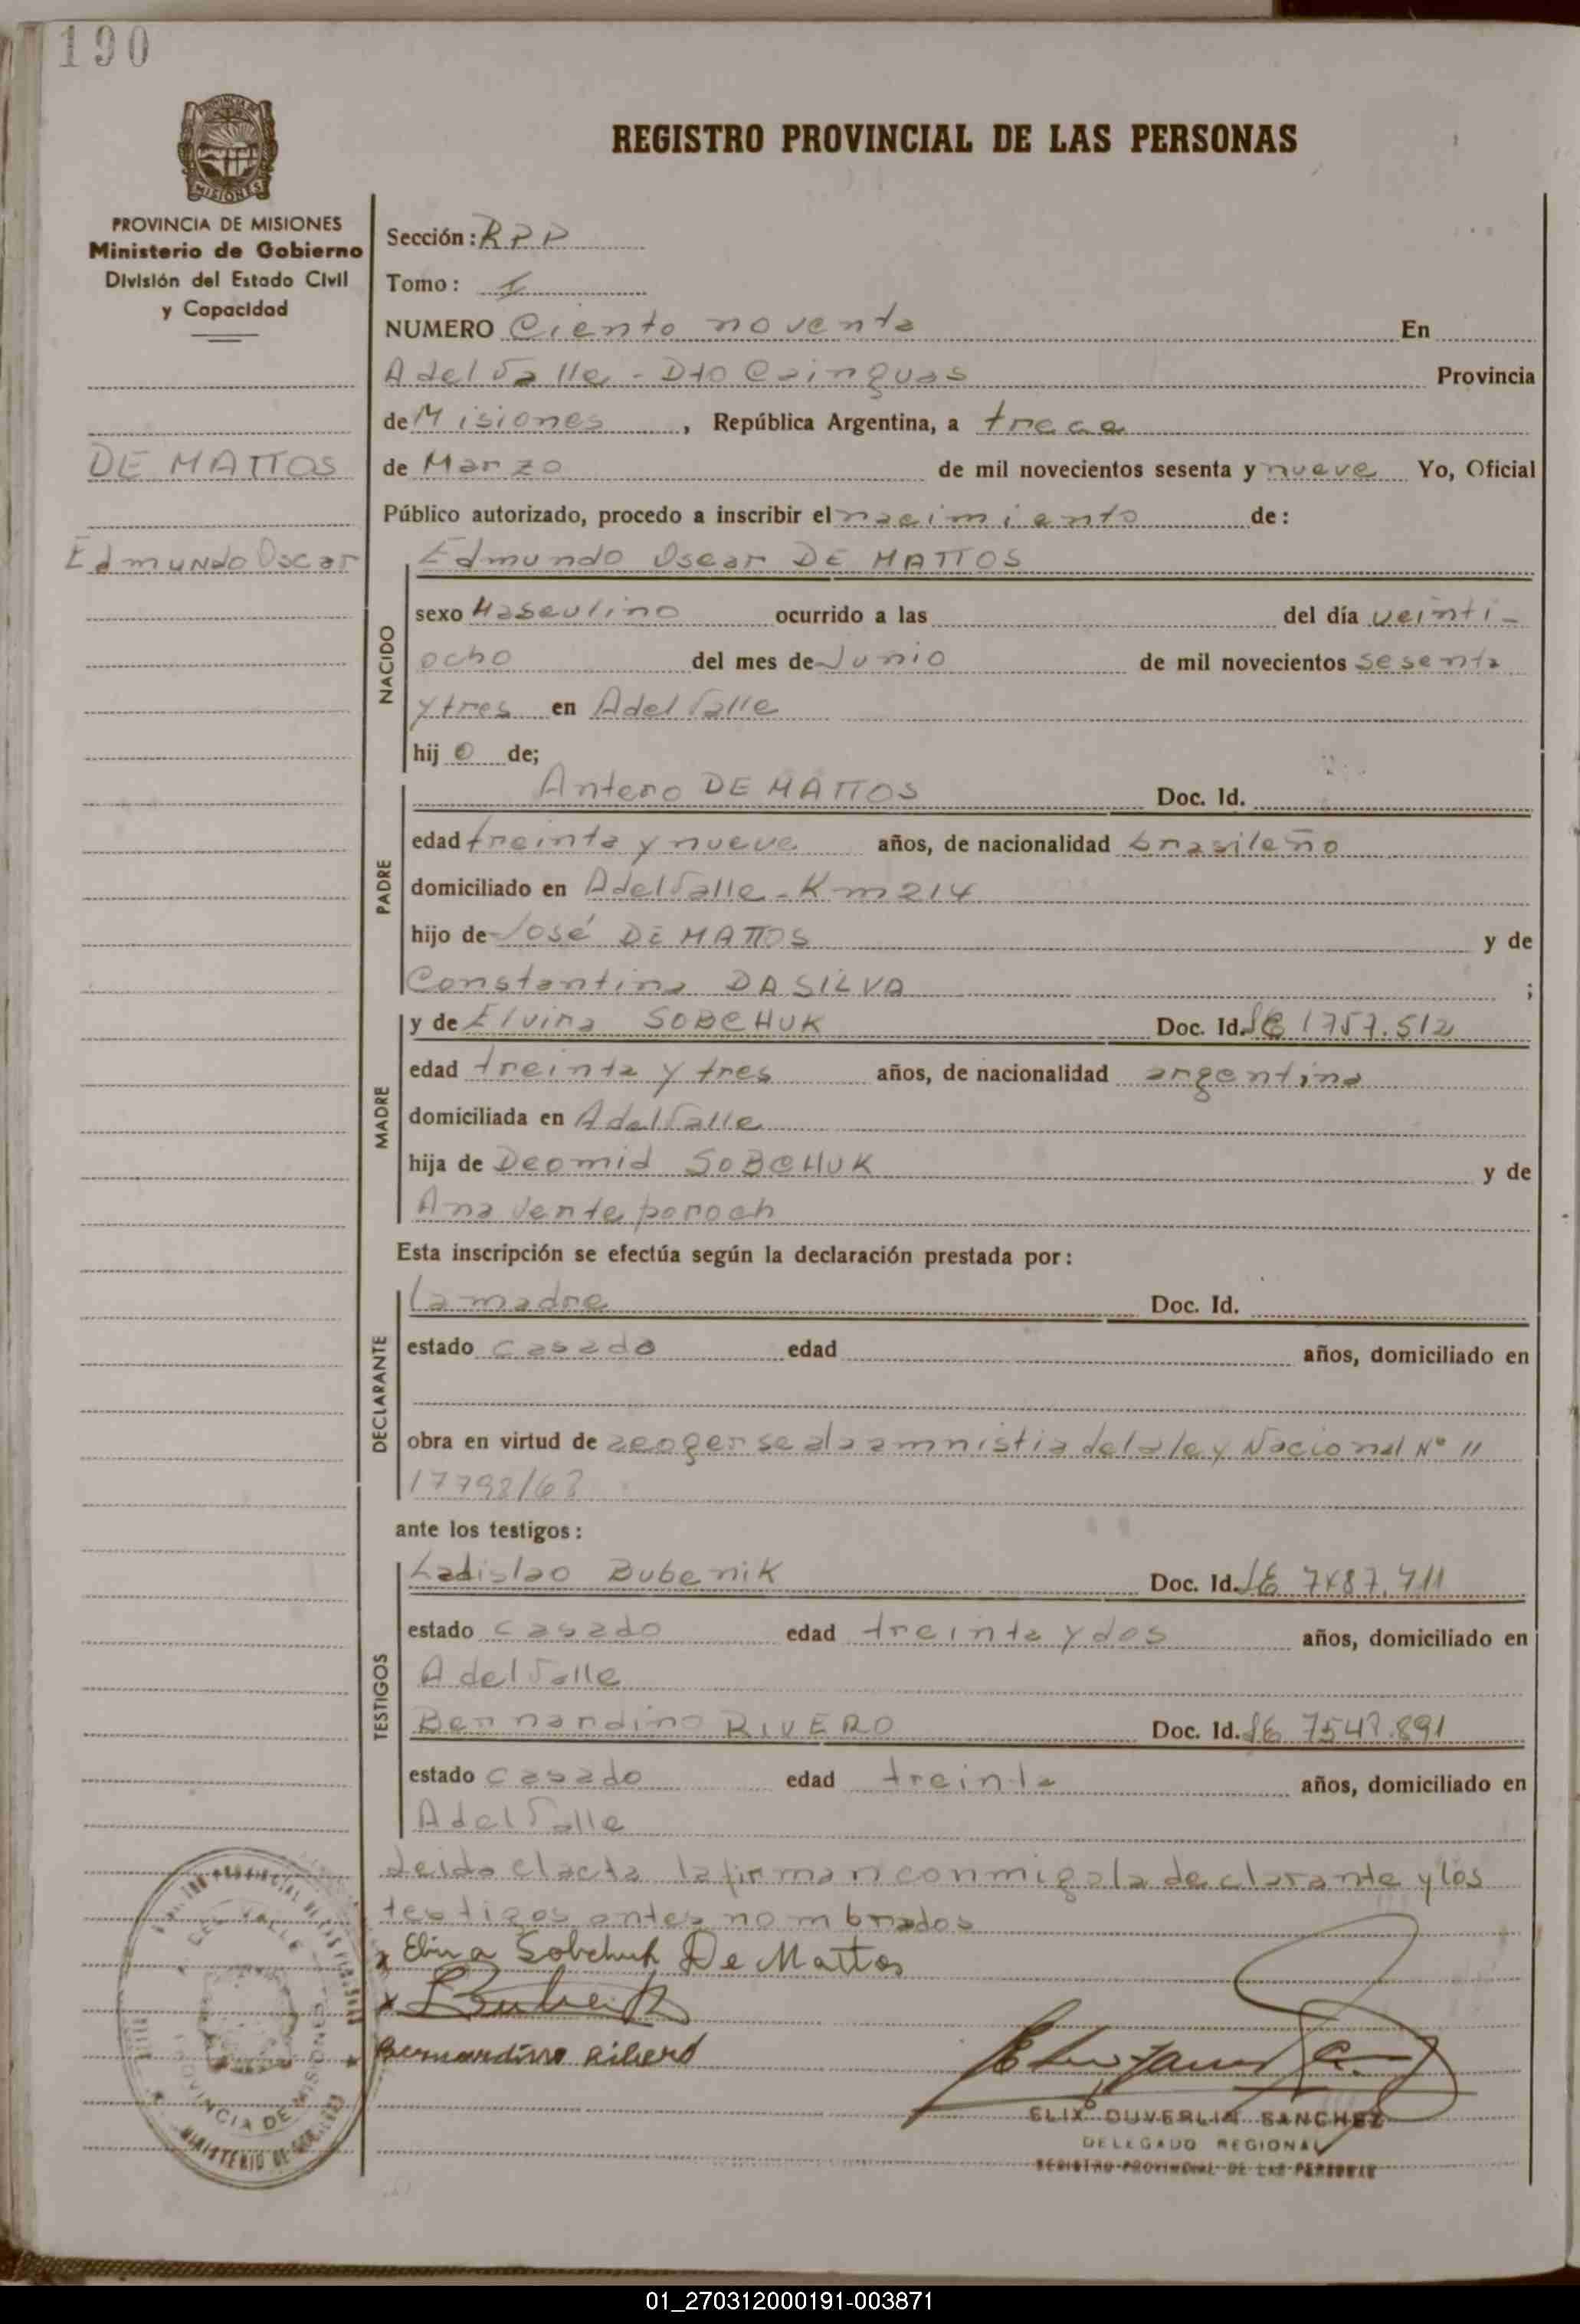 190
REGISTRO PROVINCIAL DE LAS PERSONAS
PROVINCIA DE MISIONES
Ministerio de Gobierno
División del Estado Civil
y Capacidad
DE MATTOS
Edmundo Oscar
Sección: RPP
Tomo: 1
NUMERO Ciento noventa En
A del Valle - Dto Cainguas Provincia
de Misiones, República Argentina, a trece
de Marzo de mil novecientos sesenta y nueve Yo, Oficial
Público autorizado, procedo a inscribir el nacimiento de:
NACIDO
Edmundo Oscar DE MATTOS
sexo Masculino ocurrido a las del día veinti-
ocho del mes de Junio de mil novecientos sesenta
y tres en A del Valle
hijo de;
PADRE
Antero DE MATTOS Doc. Id.
edad treinta y nueve años, de nacionalidad brasileño
domiciliado en A del Valle - Km 214
hijo de José DE MATTOS y de
Constantina DA SILVA ;
MADRE
y de Elvira SOBCHUK Doc. Id. LC 1757.512
edad treinta y tres años, de nacionalidad argentina
domiciliada en A del Valle
hija de Deomid SOBCHUK y de
Ana Venteporoch
Esta inscripción se efectúa según la declaración prestada por:
DECLARANTE
la madre Doc. Id.
estado casada edad años, domiciliado en
obra en virtud de acogerse a la amnistia de la ley Nacional Nº 11
ante los testigos:
TESTIGOS
Ladislao Bubenik Doc. Id. LE 7487.711
estado casado edad treinta y dos años, domiciliado en
A del Valle
Bernandino RIVERO Doc. Id. LE
estado casado edad treinta años, domiciliado en
A del Valle
Leida el acta la firman conmigo la declarante y los
testigos antes nombrados
x Elvira Sobchuk De Mattos
x
Bernandino Ribero
ELIX DUVERLIN SANCHEZ
DELEGADO REGIONAL
REGISTRO PROVINCIAL DE LAS PERSONAS
DEL VALLE
PROVINCIA DE MISIONES
MINISTERIO DE GOBIERNO
01_270312000191-003871